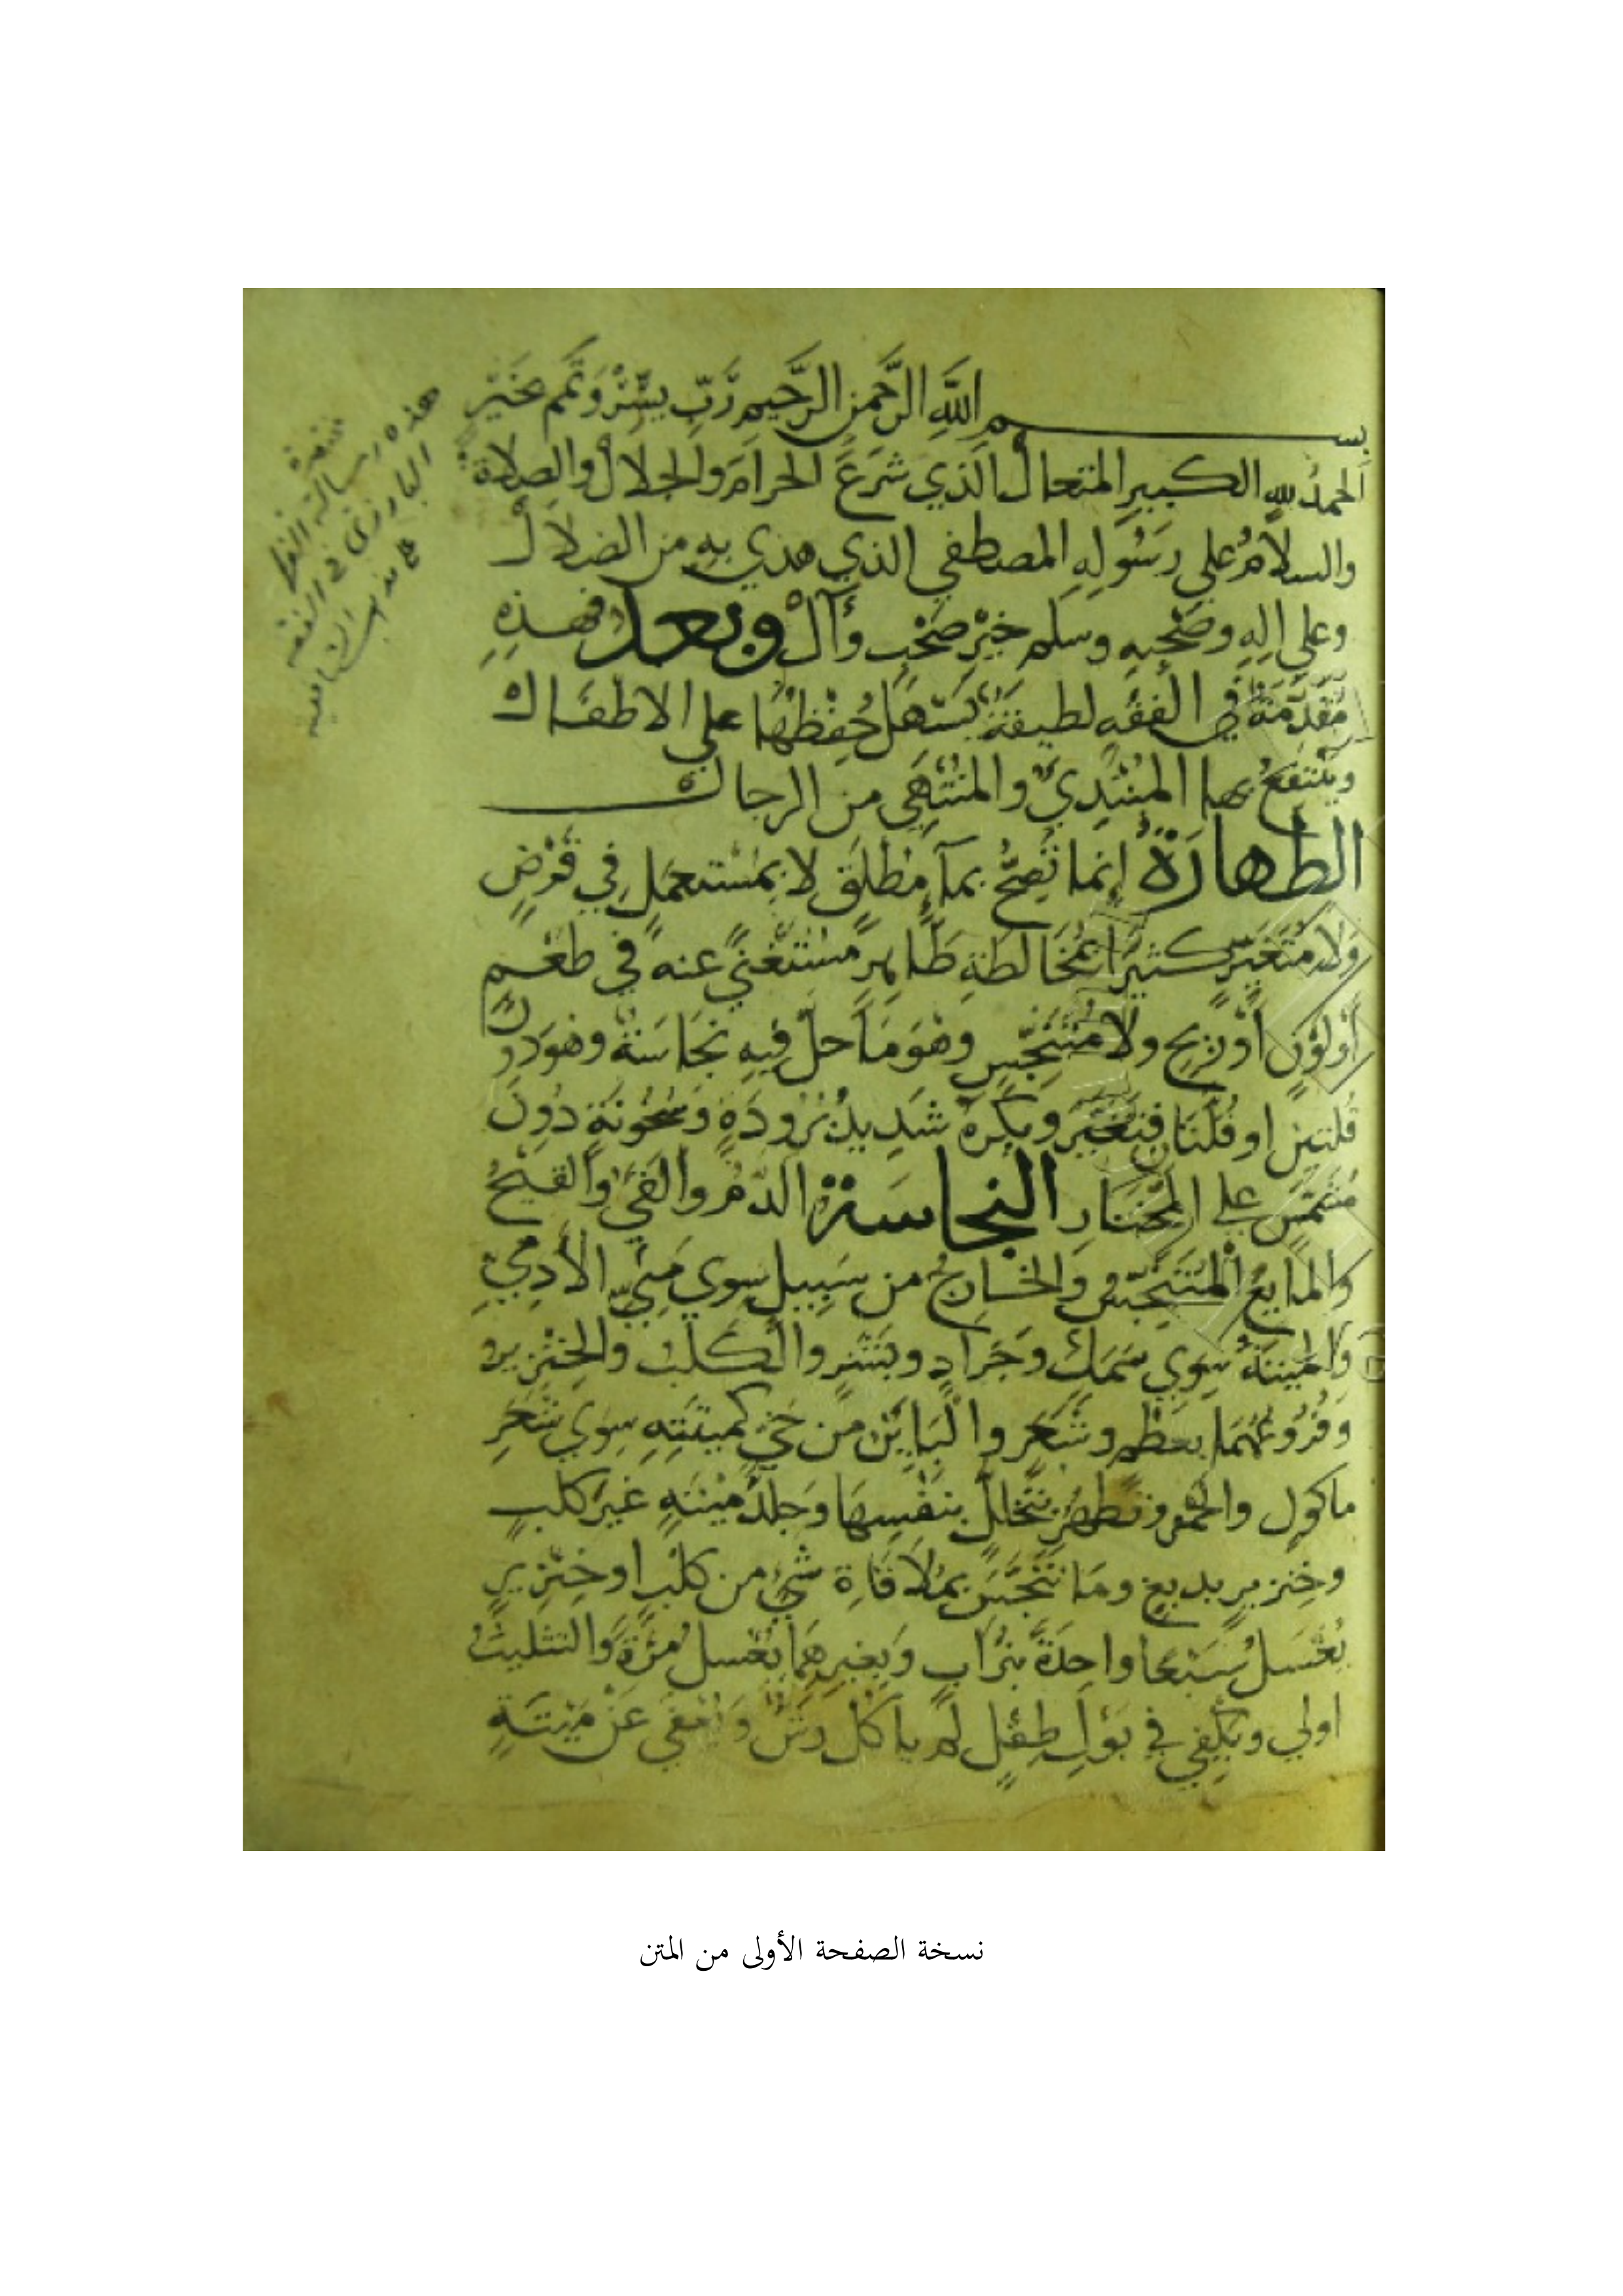 بسم الله الرَّحمن الرَّحيم رَبِّ يسِّرْ وَتَمِّم بخَيْر
الحمدُ لله الكبيرِ المتعالْ الَّذي شَرَعَ الحرامَ والحلالْ والصلاة
والسلامُ على رسُولهِ المصطفي الذي هدي به من الضلالْ
وعلي الهِ وصَحْبهِ وسلم خيْرَ صَحْبٍ وآلْ وبعد فهذِهِ
مُقدِّمَةٌ في الفقه لطيفَةٌ يَسْهلُ حُفِظْهَا علي الاطفال
ويَنْتفعُ بها المبْتديُ والمنْتَهي من الرجال
الطهارَةُ إنما تَصِحُّ بمآءٍ مُطْلَقٍ لا بمُسْتعمَلٍ في فَرْضٍ
وَلا مُتَغَيِّرٍ كثيرًا بمُخَالطَةِ طَاهِرٍ مُسْتَغْنيً عنه في طعْمٍ
أوْ لوْنٍ أوْ رِيحٍ ولا مُتَنَجِّسٍ وهْوَ مَا حلَّ فِيهِ نجَاسَةٌ وهوَ دُونَ
قُلتين او قُلَّتَانِ فتَغَيَّرَ ويُكْرَهُ شَدِيدُ بُرُودَةٍ وَسُخُونَةٍ دُونَ
مُشَمَّسٍ علي المخْتَارِ النجاسَةُ الدَّمُ والقَيْءُ والقيْحُ
والمايعُ المُتَنَجِّسُ والخَارِجُ من سَبيلٍ سِوي مَنيِّ الأدميِّ
والميْتَةُ سِوَي سَمَكٍ وجَرَادٍ وبَشَرٍ والكلبُ والخنْزيرُ
وَفُرُوعُهُمَا بعَظْمٍ وشَعَرٍ والبَاينُ من حَيٍّ كميْتَتِهِ سِوي شَعَرِ
ماكولٍ والخمْرُ وتَطهُرُ بتَخَلُّلٍ بنَفْسِهَا وَجِلدُ مَيْتَةٍ غيرَ كلبٍ
وخِنزيرٍ بدبغٍ ومَا تَنَجَّسَ بمُلاقَاةِ شَيْءٍ من كلبٍ او خِنْزيرٍ
يُغْسَلُ سَبْعًا واحِدَةً بتُرَابٍ وَبغيرِهِمَا يُغْسلُ مَرَّةً والتثليثُ
اولي ويَكْفي في بَوْلِ طِفْلٍ لم ياكُلْ رَشٌ وَيُعْفَي عَنْ مَيْتَةٍ
هذه رسالة
البارزى في الفقه
على مذهب الشافعيه
نسخة الصفحة الأولى من المتن